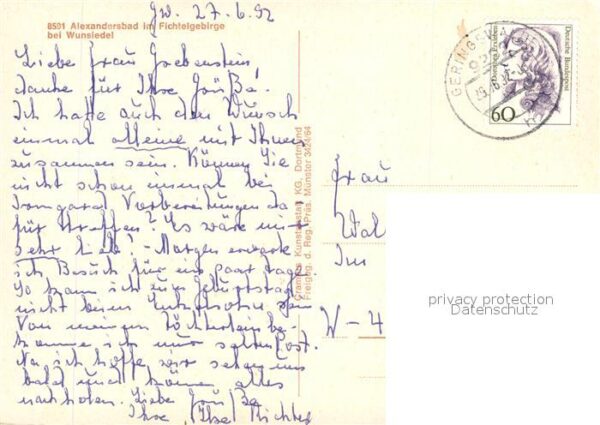 Gw. 27.6.92
8591 Alexandersbad im Fichtelgebirge
bei Wunsiedel
Liebe Frau
danke für Ihre Grüße!
Ich hatte auch den Wunsch
einmal alleine mit Ihnen
zusammen sein. Können Sie
nicht schon einmal bei
Irmgard Vorbereitungen da
für treffen? Es wäre mir
sehr lieb! - Morgen erwarte
ich Besuch für ein paar Tage.
So kann ich zum Geburtstag
nicht beim
Von meinen Töchterlein be-
komme ich nur selten Post.
Na ich hoffe wir sehen uns
bald und können alles
nachholen. Liebe Grüße
Ihre Ilse Richter
Cramers Kunstanstalt KG, Dortmund
Freigeg. d. Reg.-Präs. Münster 3424/84
GERINGSWALDE
60
Deutsche Bundespost
Frau
Wal
Im
W-4
privacy protection
Datenschutz